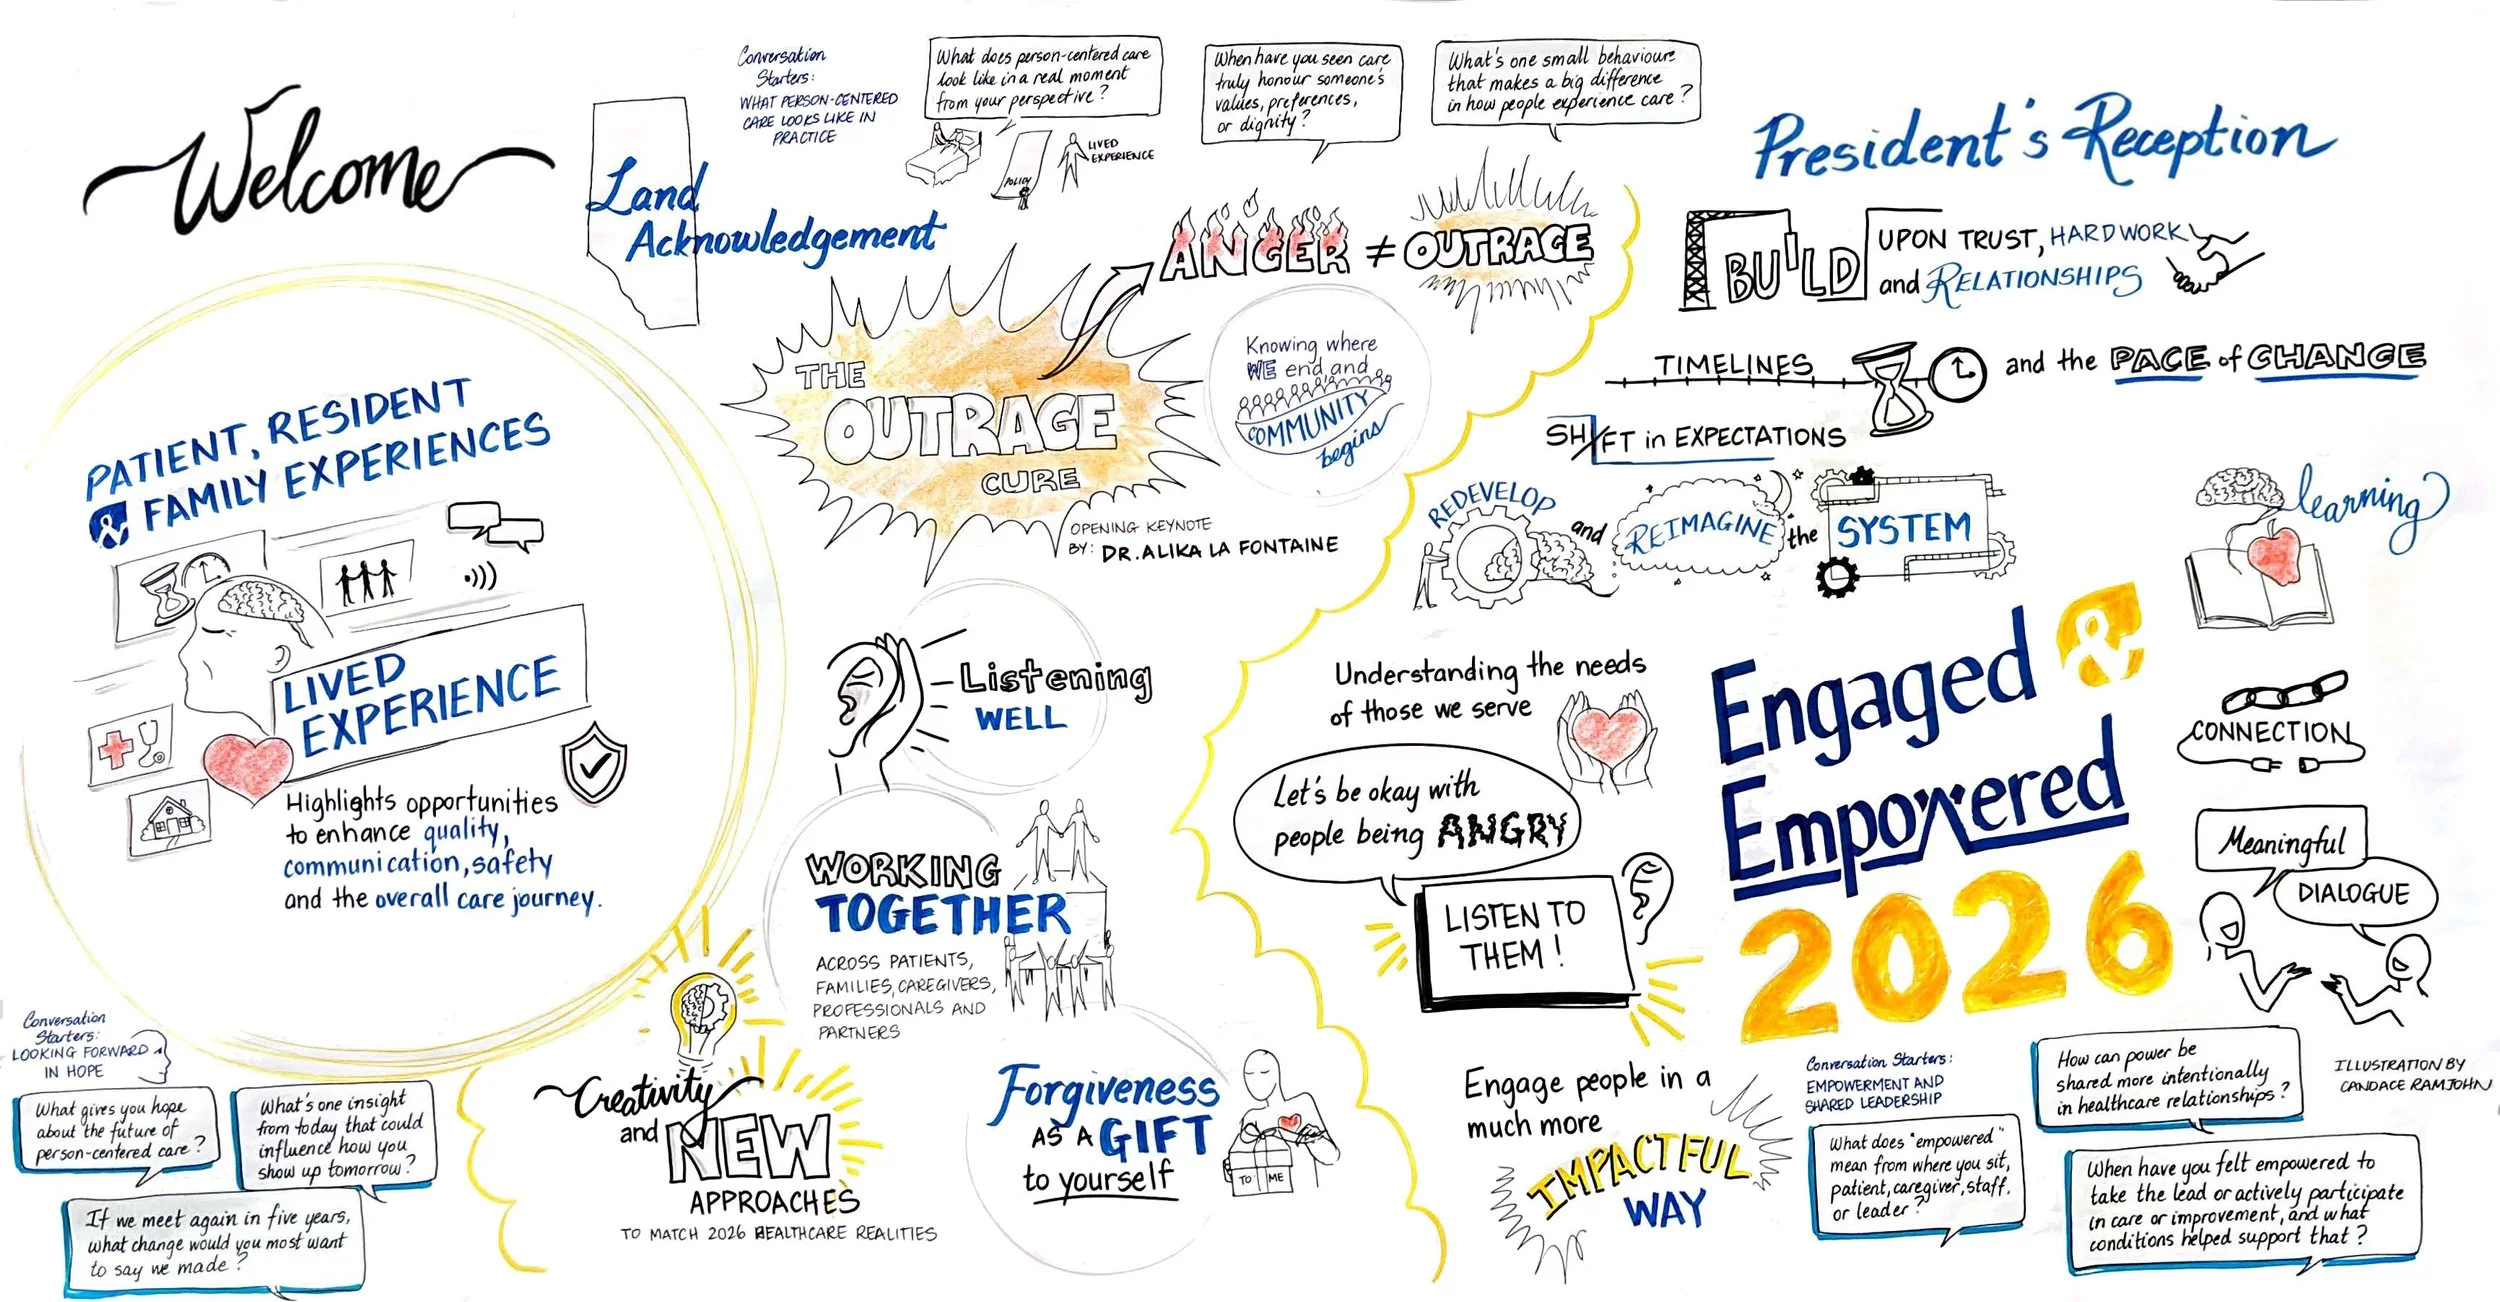 Welcome
Land
Acknowledgement
Conversation
Starters:
WHAT PERSON-CENTERED
CARE LOOKS LIKE IN
PRACTICE
What does person-centered care
look like in a real moment
from your perspective?
POLICY
LIVED
EXPERIENCE
When have you seen care
truly honour someone's
values, preferences,
or dignity?
What's one small behaviour
that makes a big difference
in how people experience care?
PATIENT, RESIDENT
& FAMILY EXPERIENCES
LIVED
EXPERIENCE
Highlights opportunities
to enhance quality,
communication, safety
and the overall care journey.
Conversation
Starters:
LOOKING FORWARD
IN HOPE
What gives you hope
about the future of
person-centered care?
What's one insight
from today that could
influence how you
show up tomorrow?
If we meet again in five years,
what change would you most want
to say we made?
THE
OUTRAGE
CURE
OPENING KEYNOTE
BY: DR. ALIKA LA FONTAINE
ANGER ≠ OUTRAGE
Knowing where
WE end and
COMMUNITY
begins
Listening
WELL
WORKING
TOGETHER
ACROSS PATIENTS,
FAMILIES, CAREGIVERS,
PROFESSIONALS AND
PARTNERS
Creativity
and NEW
APPROACHES
TO MATCH 2026 HEALTHCARE REALITIES
Forgiveness
AS A GIFT
to yourself
TO ME
President's Reception
BUILD UPON TRUST, HARDWORK
and RELATIONSHIPS
TIMELINES and the PACE of CHANGE
SHIFT in EXPECTATIONS
REDEVELOP and REIMAGINE the SYSTEM
learning
Understanding the needs
of those we serve
Let's be okay with
people being ANGRY
LISTEN TO
THEM!
Engage people in a
much more
IMPACTFUL
WAY
Engaged &
Empowered
2026
CONNECTION
Meaningful
DIALOGUE
Conversation Starters:
EMPOWERMENT AND
SHARED LEADERSHIP
What does "empowered"
mean from where you sit,
patient, caregiver, staff,
or leader?
How can power be
shared more intentionally
in healthcare relationships?
When have you felt empowered to
take the lead or actively participate
in care or improvement, and what
conditions helped support that?
ILLUSTRATION BY
CANDACE RAMJOHN